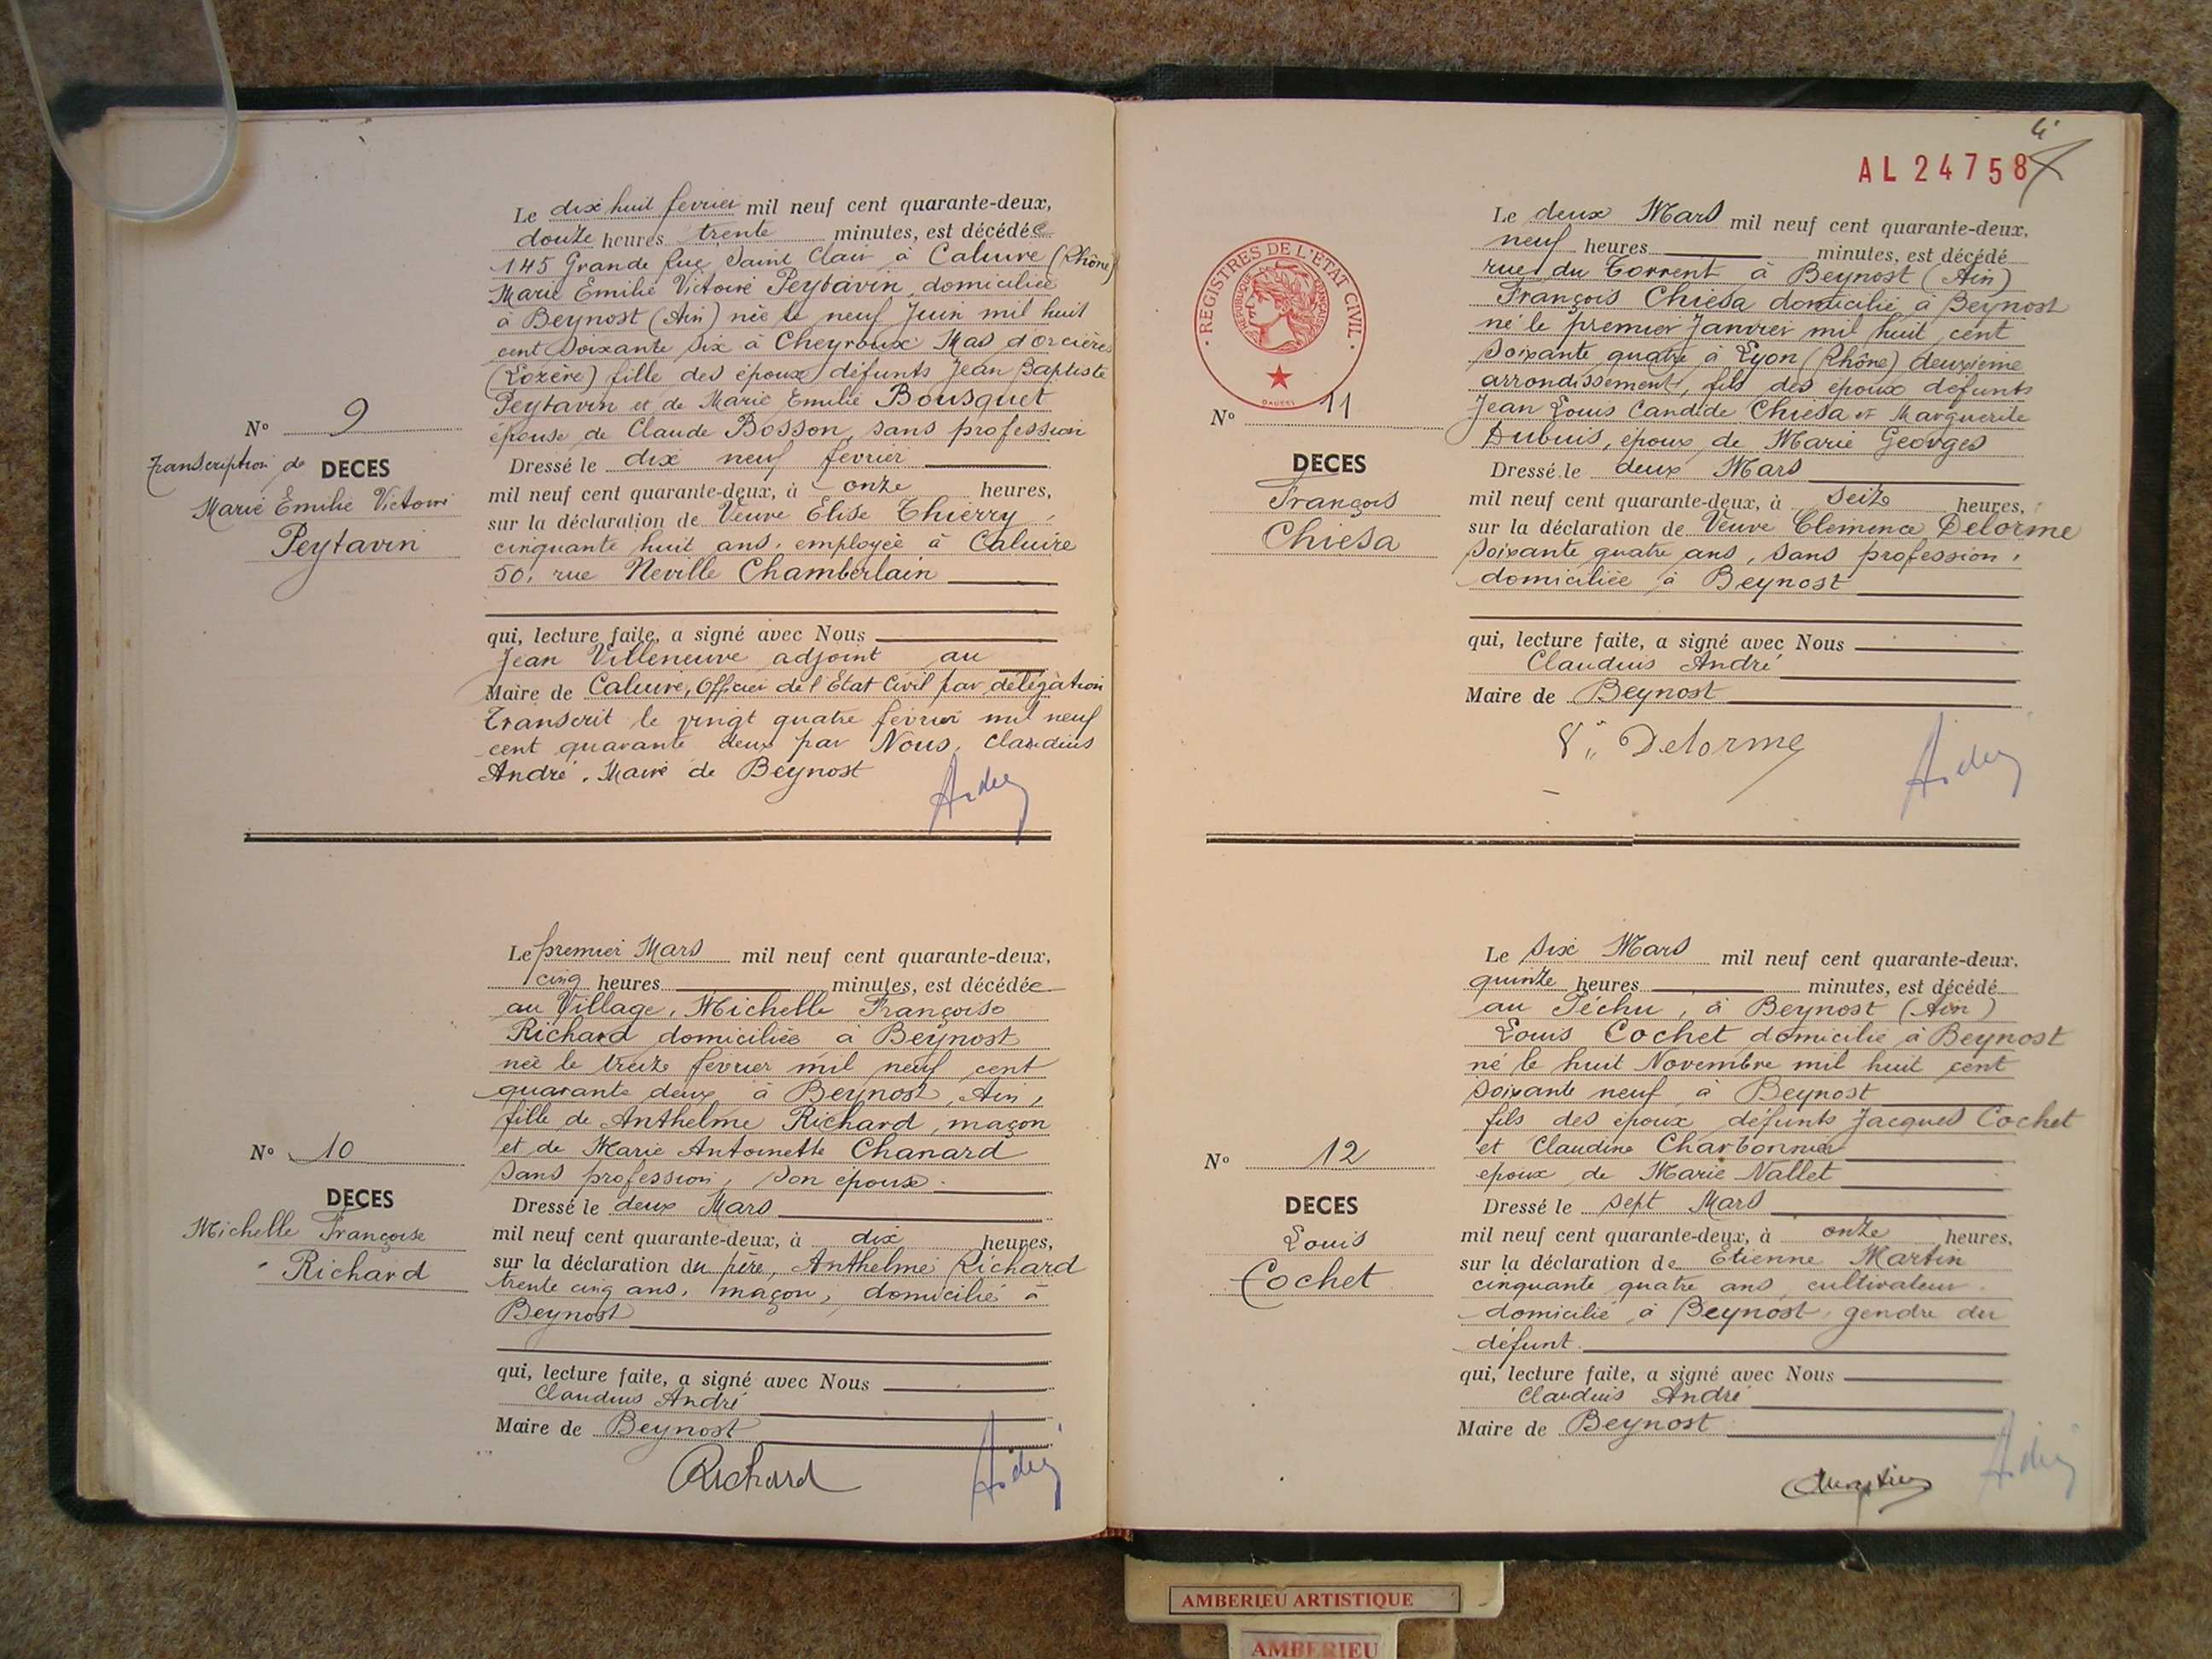 Le dix huit février mil neuf cent quarante-deux,
douze heures trente minutes, est décédée
145 Grande Rue Saint Clair à Caluire (Rhône)
Marie Emilie Victoire Peytavin, domiciliée
à Beynost (Ain) née le neuf Juin mil huit
cent soixante six à Cheyroux Mas d'Orcières
(Lozère) fille des époux défunts Jean Baptiste
Peytavin et de Marie Emilie Bousquet
épouse de Claude Bosson, sans profession
Dressé le dix neuf février
mil neuf cent quarante-deux, à onze heures,
sur la déclaration de Veuve Elise Thierry,
cinquante huit ans, employée à Caluire
50, rue Neville Chamberlain
qui, lecture faite, a signé avec Nous
Jean Villeneuve adjoint au
Maire de Caluire, Officier de l'Etat Civil par délégation
Transcrit le vingt quatre février mil neuf
cent quarante deux par Nous, Claudius
André, Maire de Beynost
André
N° 9
Transcription de DECES
Marie Emilie Victoire
Peytavin
Le premier Mars mil neuf cent quarante-deux,
cinq heures minutes, est décédée
au Village, Michelle Françoise
Richard domiciliée à Beynost
née le treize février mil neuf cent
quarante deux à Beynost, Ain,
fille de Anthelme Richard, maçon
et de Marie Antoinette Chanard
sans profession, son épouse.
Dressé le deux Mars
mil neuf cent quarante-deux, à dix heures,
sur la déclaration du père, Anthelme Richard
trente cinq ans, maçon, domicilié à
Beynost
qui, lecture faite, a signé avec Nous
Claudius André
Maire de Beynost
Richard André
N° 10
DECES
Michelle Françoise
Richard
4
AL 24758
REGISTRES DE L'ETAT CIVIL
REPUBLIQUE FRANÇAISE
Le deux Mars mil neuf cent quarante-deux,
neuf heures minutes, est décédé
rue du Torrent à Beynost (Ain)
François Chiesa domicilié à Beynost
né le premier Janvier mil huit cent
soixante quatre à Lyon (Rhône) deuxième
arrondissement, fils des époux défunts
Jean Louis Candide Chiesa et Marguerite
Dubuis, époux de Marie Georges
Dressé le deux Mars
mil neuf cent quarante-deux, à seize heures,
sur la déclaration de Veuve Clemence Delorme
soixante quatre ans, sans profession,
domiciliée à Beynost
qui, lecture faite, a signé avec Nous
Claudius André
Maire de Beynost
Vve Delorme André
N° 11
DECES
François
Chiesa
Le six Mars mil neuf cent quarante-deux,
quinze heures minutes, est décédé
au Péchu, à Beynost (Ain)
Louis Cochet domicilié à Beynost
né le huit Novembre mil huit cent
soixante neuf à Beynost
fils des époux défunts Jacques Cochet
et Claudine Charbonnier
époux de Marie Nallet
Dressé le sept Mars
mil neuf cent quarante-deux, à onze heures,
sur la déclaration de Etienne Martin
cinquante quatre ans, cultivateur
domicilié à Beynost gendre du
défunt.
qui, lecture faite, a signé avec Nous
Claudius André
Maire de Beynost
Martin André
N° 12
DECES
Louis
Cochet
AMBERIEU ARTISTIQUE
AMBERIEU